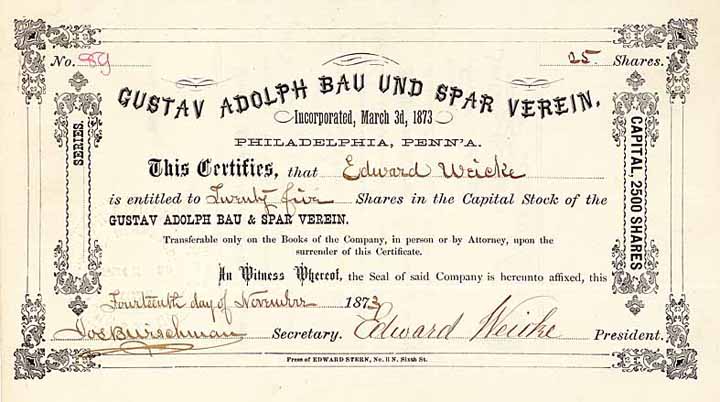 No. 89 25 Shares.
GUSTAV ADOLPH BAU UND SPAR VEREIN,
Incorporated, March 3d, 1873
PHILADELPHIA, PENN'A.
SERIES.
CAPITAL, 2500 SHARES
This Certifies, that Edward Weicke
is entitled to Twenty five Shares in the Capital Stock of the
GUSTAV ADOLPH BAU & SPAR VEREIN.
Transferable only on the Books of the Company, in person or by Attorney, upon the
surrender of this Certificate.
In Witness Whereof, the Seal of said Company is hereunto affixed, this
Fourteenth day of November 1873
Secretary. Edward Weicke President.
Press of EDWARD STERN, No. 11 N. Sixth St.